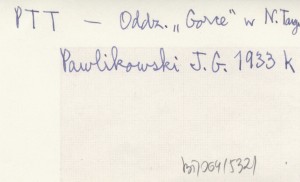 PTT – Oddz. „Gorce" w N. Targ
Pawlikowski J. G. 1933 k
bi/064/532/